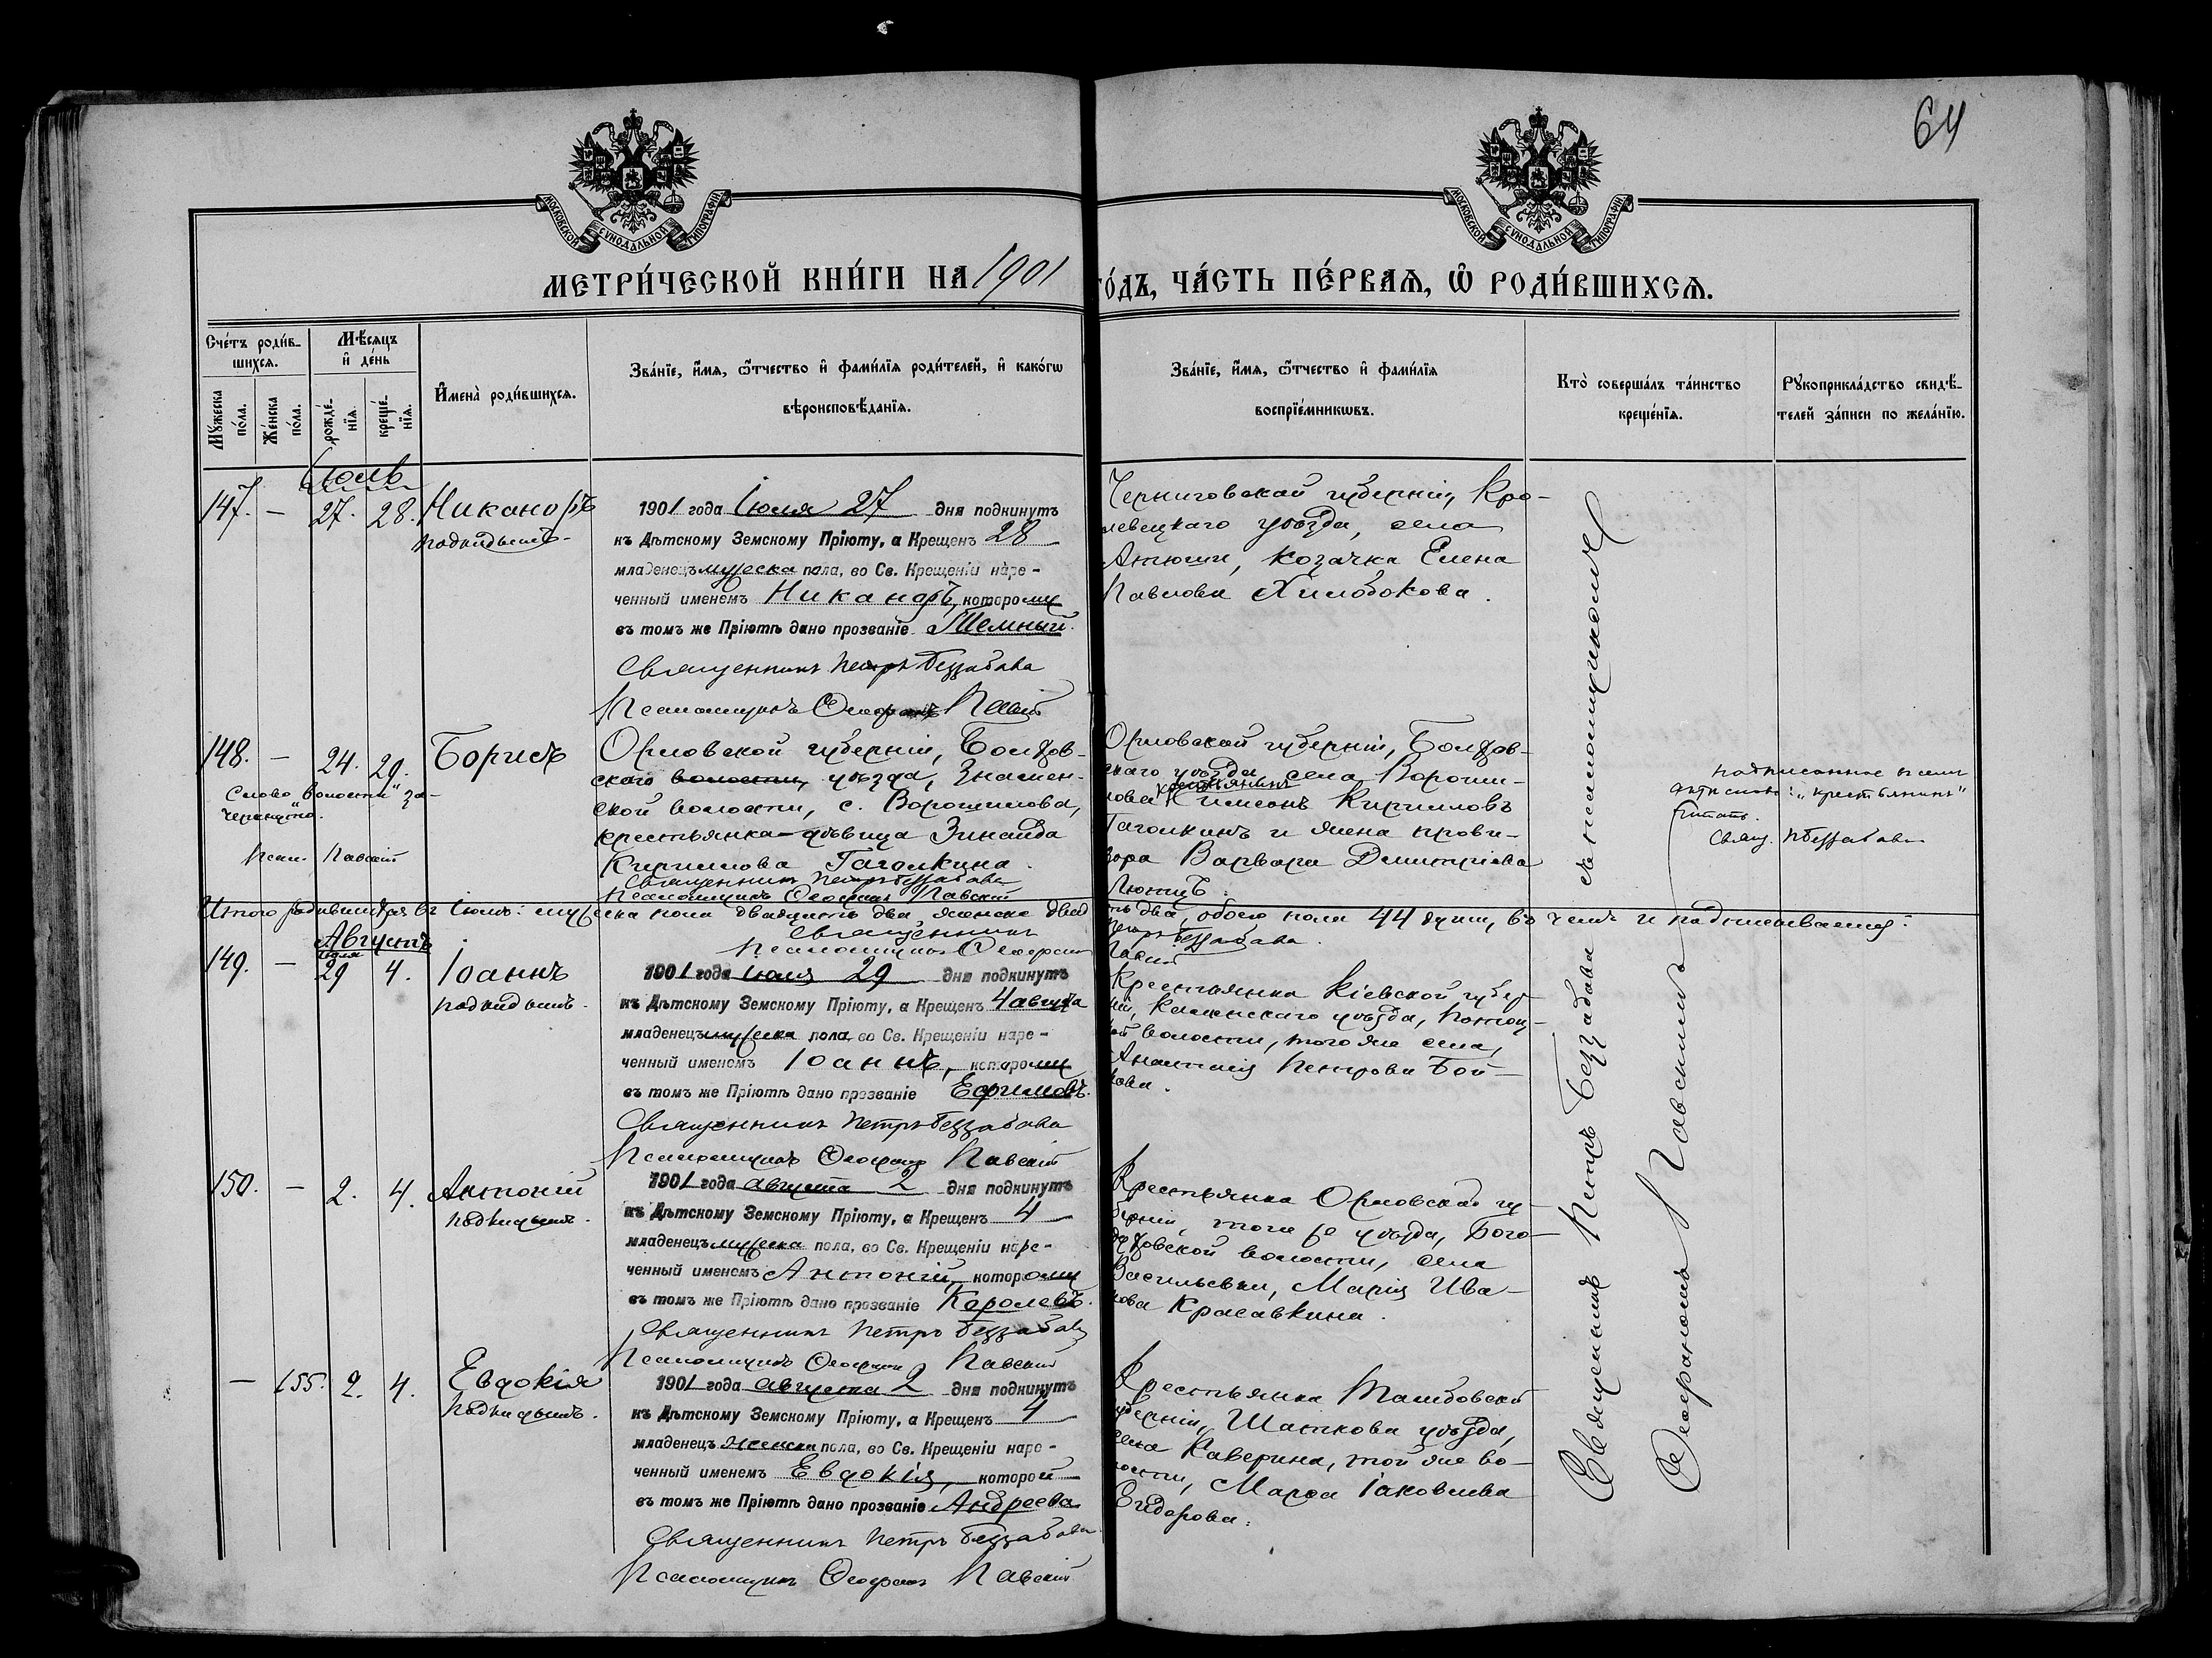 64
МОСКОВСКОЙ СѴНОДАЛЬНОЙ ТИПОГРАФІИ
МОСКОВСКОЙ СѴНОДАЛЬНОЙ ТИПОГРАФІИ
МЕТРИ́ЧЕСКОЙ КНИ́ГИ НА 1901 ГО́ДЪ, ЧА́СТЬ ПЕ́РВАѦ, Ѽ РОДИ́ВШИХСѦ.
Сче́тъ роди́в-
шихсѧ.
Мꙋ́жеска
по́ла.
Же́нска
по́ла.
Мѣ́сѧцъ
и҆ де́нь
рожде́-
нїѧ.
креще́-
нїѧ.
И҆мена̀ роди́вшихсѧ.
Зва́нїе, и҆́мѧ, ѻ҆́тчество и҆ фами́лїѧ роди́телей, и҆ како́гѡ
вѣроисповѣ́данїѧ.
Зва́нїе, и҆́мѧ, ѻ҆́тчество и҆ фами́лїѧ
воспрїе́мникѡвъ.
Кто̀ соверша́лъ та́инство
креще́нїѧ.
Рꙋкоприкла́дство свидѣ́-
телей за́писи по жела́нїю.
Іюль
147. – 27. 28. Никаноръ
подкидышъ.
1901 года Іюля 27 дня подкинутъ
къ Дѣтскому Земскому Пріюту, а Крещенъ 28
младенецъ мужеска пола, во Св. Крещеніи наре-
ченный именемъ Никаноръ, которому
въ томъ же Пріютѣ дано прозваніе Темный.
Священникъ Петръ Беззабава
Псаломщикъ Ѳеофанъ Павскій
Черниговской губерніи, Кро-
левецкаго уѣзда, села
Атюши, козачка Елена
Павлова Хилобокова.
148. – 24. 29. Борисъ
Слово „волости" за-
черкнуто.
Псал. Павскій
Орловской губерніи, Болхов-
скаго волости, уѣзда, Знамен-
ской волости, с. Ворошилова,
крестьянка-дѣвица Зинаида
Кириллова Гаголкина.
Священникъ Петръ Беззабава
Псаломщикъ Ѳеофанъ Павскій
Орловской губерніи, Болхов-
скаго уѣзда села Вороши-
лова крестьянинъ Симеонъ Кирилловъ
Гаголкинъ и жена прови-
зора Варвара Димитріева
надписанное выше
„крестьянинъ"
читать.
Свящ. П Беззабава
Итого родившихся въ Іюлѣ: мужеска пола двадцать два, женска двадцать два, обоего пола 44 души, въ чемъ и подписываемся:
Священникъ Петръ Беззабава.
Псаломщикъ Ѳеофанъ Павскій
Августъ
149. – Іюля 29 4. Іоаннъ
подкидышъ.
1901 года Іюля 29 дня подкинутъ
къ Дѣтскому Земскому Пріюту, а Крещенъ 4 августа
младенецъ мужеска пола, во Св. Крещеніи наре-
ченный именемъ Іоаннъ, которому
въ томъ же Пріютѣ дано прозваніе Ефимовъ.
Священникъ Петръ Беззабава
Псаломщикъ Ѳеофанъ Павскій
Крестьянка Кіевской губер-
ніи, Каневскаго уѣзда,
волости, того же села,
Анастасія Петрова Бой-
кова.
150. – 2. 4. Антоній
подкидышъ.
1901 года августа 2 дня подкинутъ
къ Дѣтскому Земскому Пріюту, а Крещенъ 4
младенецъ мужеска пола, во Св. Крещеніи наре-
ченный именемъ Антоній, которому
въ томъ же Пріютѣ дано прозваніе Королевъ.
Священникъ Петръ Беззабава
Псаломщикъ Ѳеофанъ Павскій
Крестьянка Орловской гу-
берніи, того же уѣзда, Бого-
волости, села
Васильевки, Марія Ива-
нова Красавкина.
– 155. 2. 4. Евдокія
подкидышъ.
1901 года августа 2 дня подкинутъ
къ Дѣтскому Земскому Пріюту, а Крещенъ 4
младенецъ женска пола, во Св. Крещеніи наре-
ченный именемъ Евдокія, которой
въ томъ же Пріютѣ дано прозваніе Андреева
Священникъ Петръ Беззабава
Псаломщикъ Ѳеофанъ Павскій
Крестьянка Тамбовской
губерніи, Шацкова уѣзда,
села Каверина, той же во-
лости, Марѳа Іаковлева
Священникъ Петръ Беззабава съ псаломщикомъ
Ѳеофаномъ Павскимъ